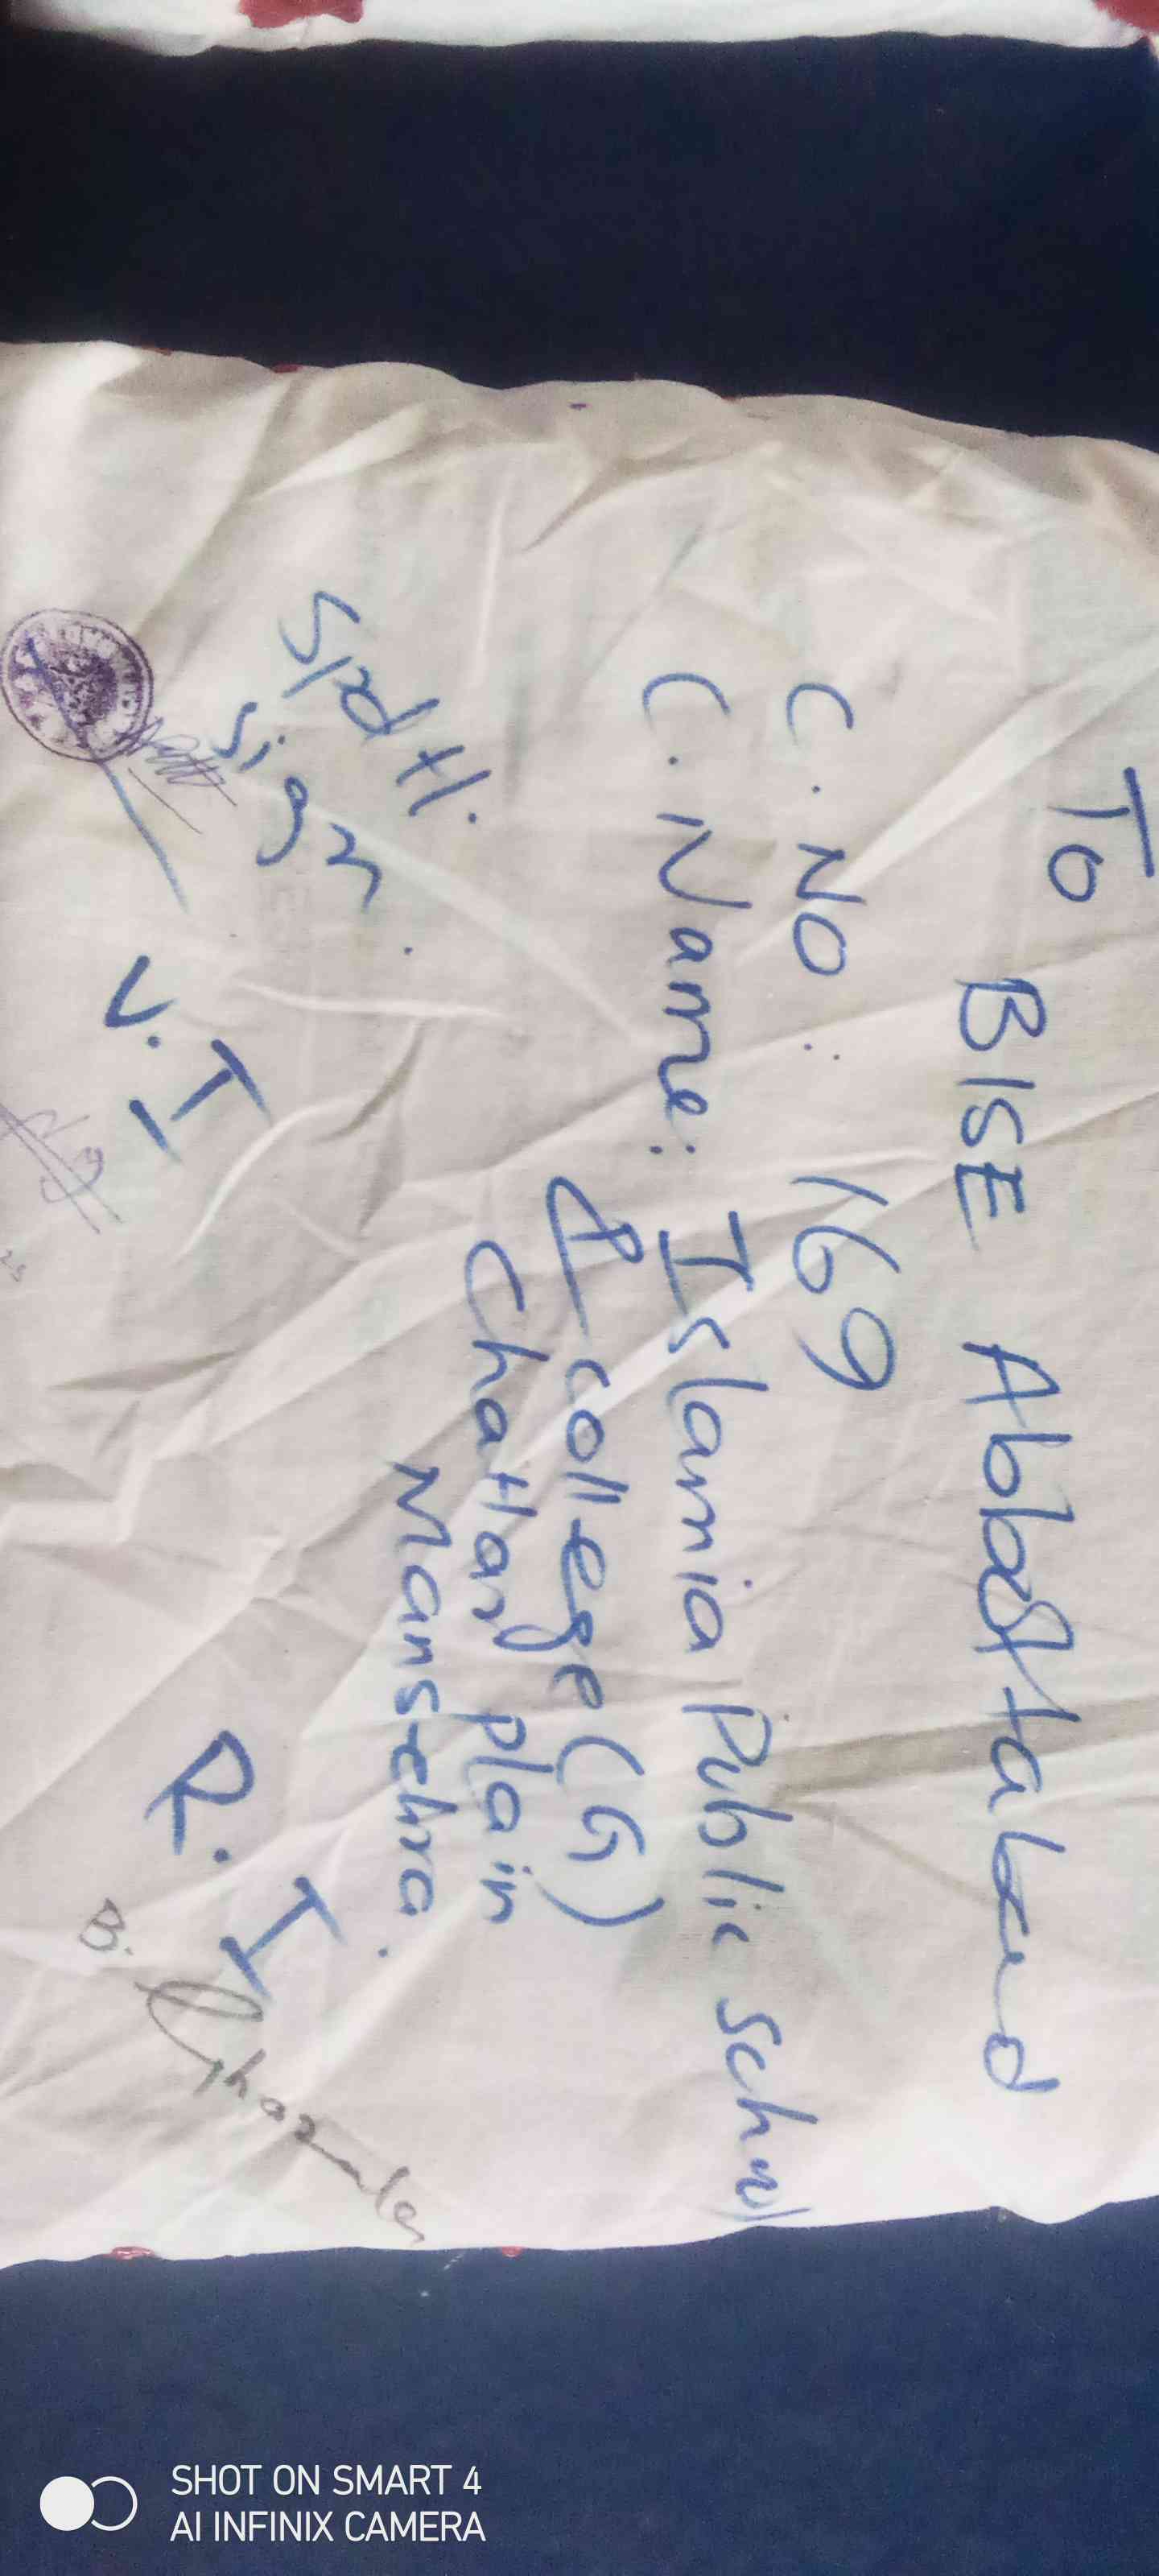 To
BISE Abbottabad
C. No : 169
C. Name: Islamia Public School
& college (G)
Chattar plain
Mansehra.
Spdt.
Sign.
V. I
R. I
B.
SHOT ON SMART 4
AI INFINIX CAMERA